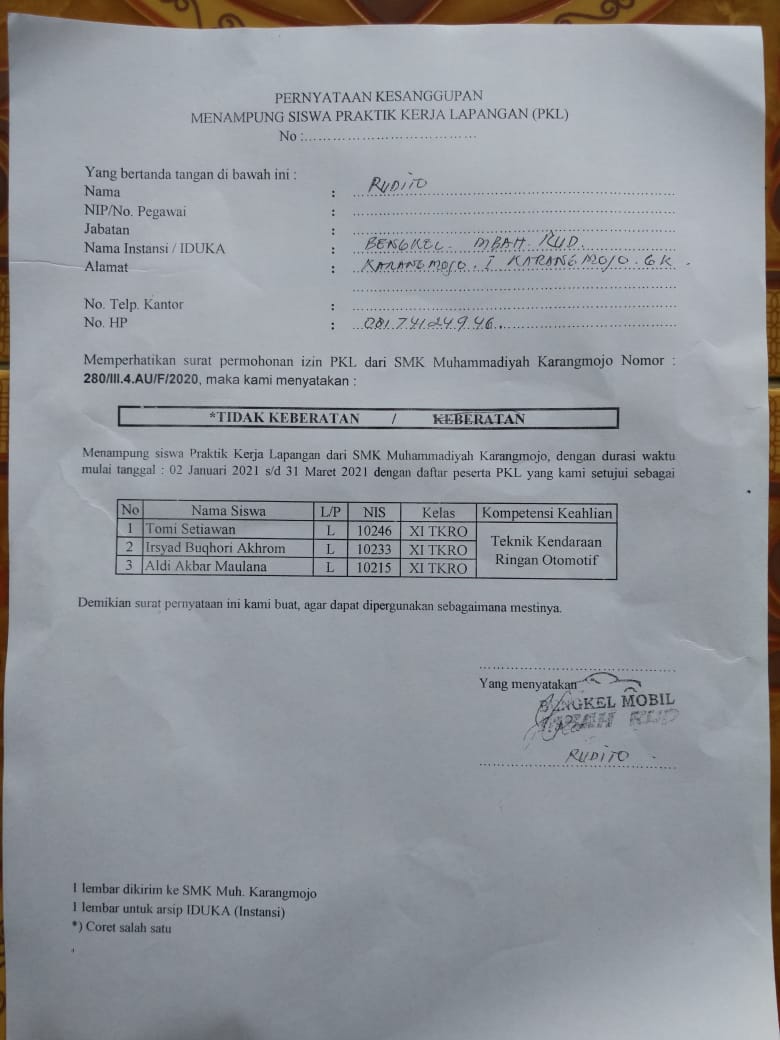 PERNYATAAN KESANGGUPAN
MENAMPUNG SISWA PRAKTIK KERJA LAPANGAN (PKL)
No :........................................
Yang bertanda tangan di bawah ini :
Nama : RUDITO
NIP/No. Pegawai :
Jabatan :
Nama Instansi / IDUKA : BENGKEL MBAH RUD.
Alamat : KARANGMOJO. I KARANGMOJO. GK.
No. Telp. Kantor :
No. HP : 081 741 24 9 46.
Memperhatikan surat permohonan izin PKL dari SMK Muhammadiyah Karangmojo Nomor :
280/III.4.AU/F/2020, maka kami menyatakan :
*TIDAK KEBERATAN / KEBERATAN
Menampung siswa Praktik Kerja Lapangan dari SMK Muhammadiyah Karangmojo, dengan durasi waktu
mulai tanggal : 02 Januari 2021 s/d 31 Maret 2021 dengan daftar peserta PKL yang kami setujui sebagai
No Nama Siswa L/P NIS Kelas Kompetensi Keahlian
1 Tomi Setiawan L 10246 XI TKRO Teknik Kendaraan Ringan Otomotif
2 Irsyad Buqhori Akhrom L 10233 XI TKRO
3 Aldi Akbar Maulana L 10215 XI TKRO
Demikian surat pernyataan ini kami buat, agar dapat dipergunakan sebagaimana mestinya.
Yang menyatakan
BENGKEL MOBIL
MBAH RUD
RUDITO
1 lembar dikirim ke SMK Muh. Karangmojo
1 lembar untuk arsip IDUKA (Instansi)
*) Coret salah satu